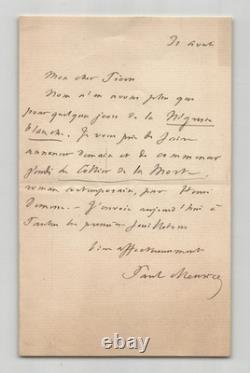 31 août
Mon cher
Nous n'en avons plus que
pour quelques jours de la Négresse
blanche. Je vous prie de faire
annoncer demain et de commencer
jeudi le Collier de la Morte,
roman contemporain, par Henri
Demesse. J'envoie aujourd'hui à
les premiers feuilletons
Bien affectueusement
Paul Meurice
ebay